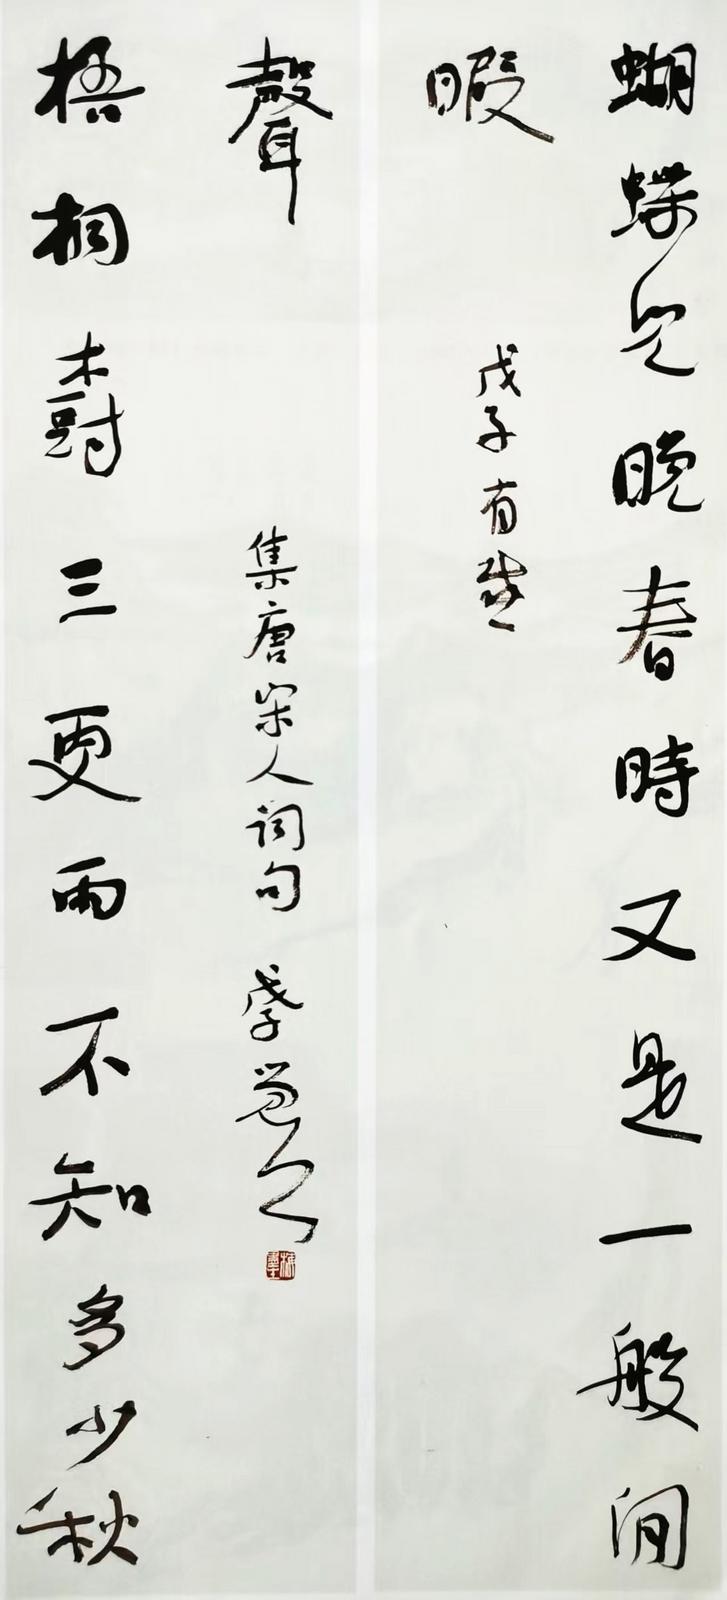 蝴蝶兒晚春時又是一般閒
暇
戊子有
梧桐樹三更雨不知多少秋
聲
集唐宋人詞句